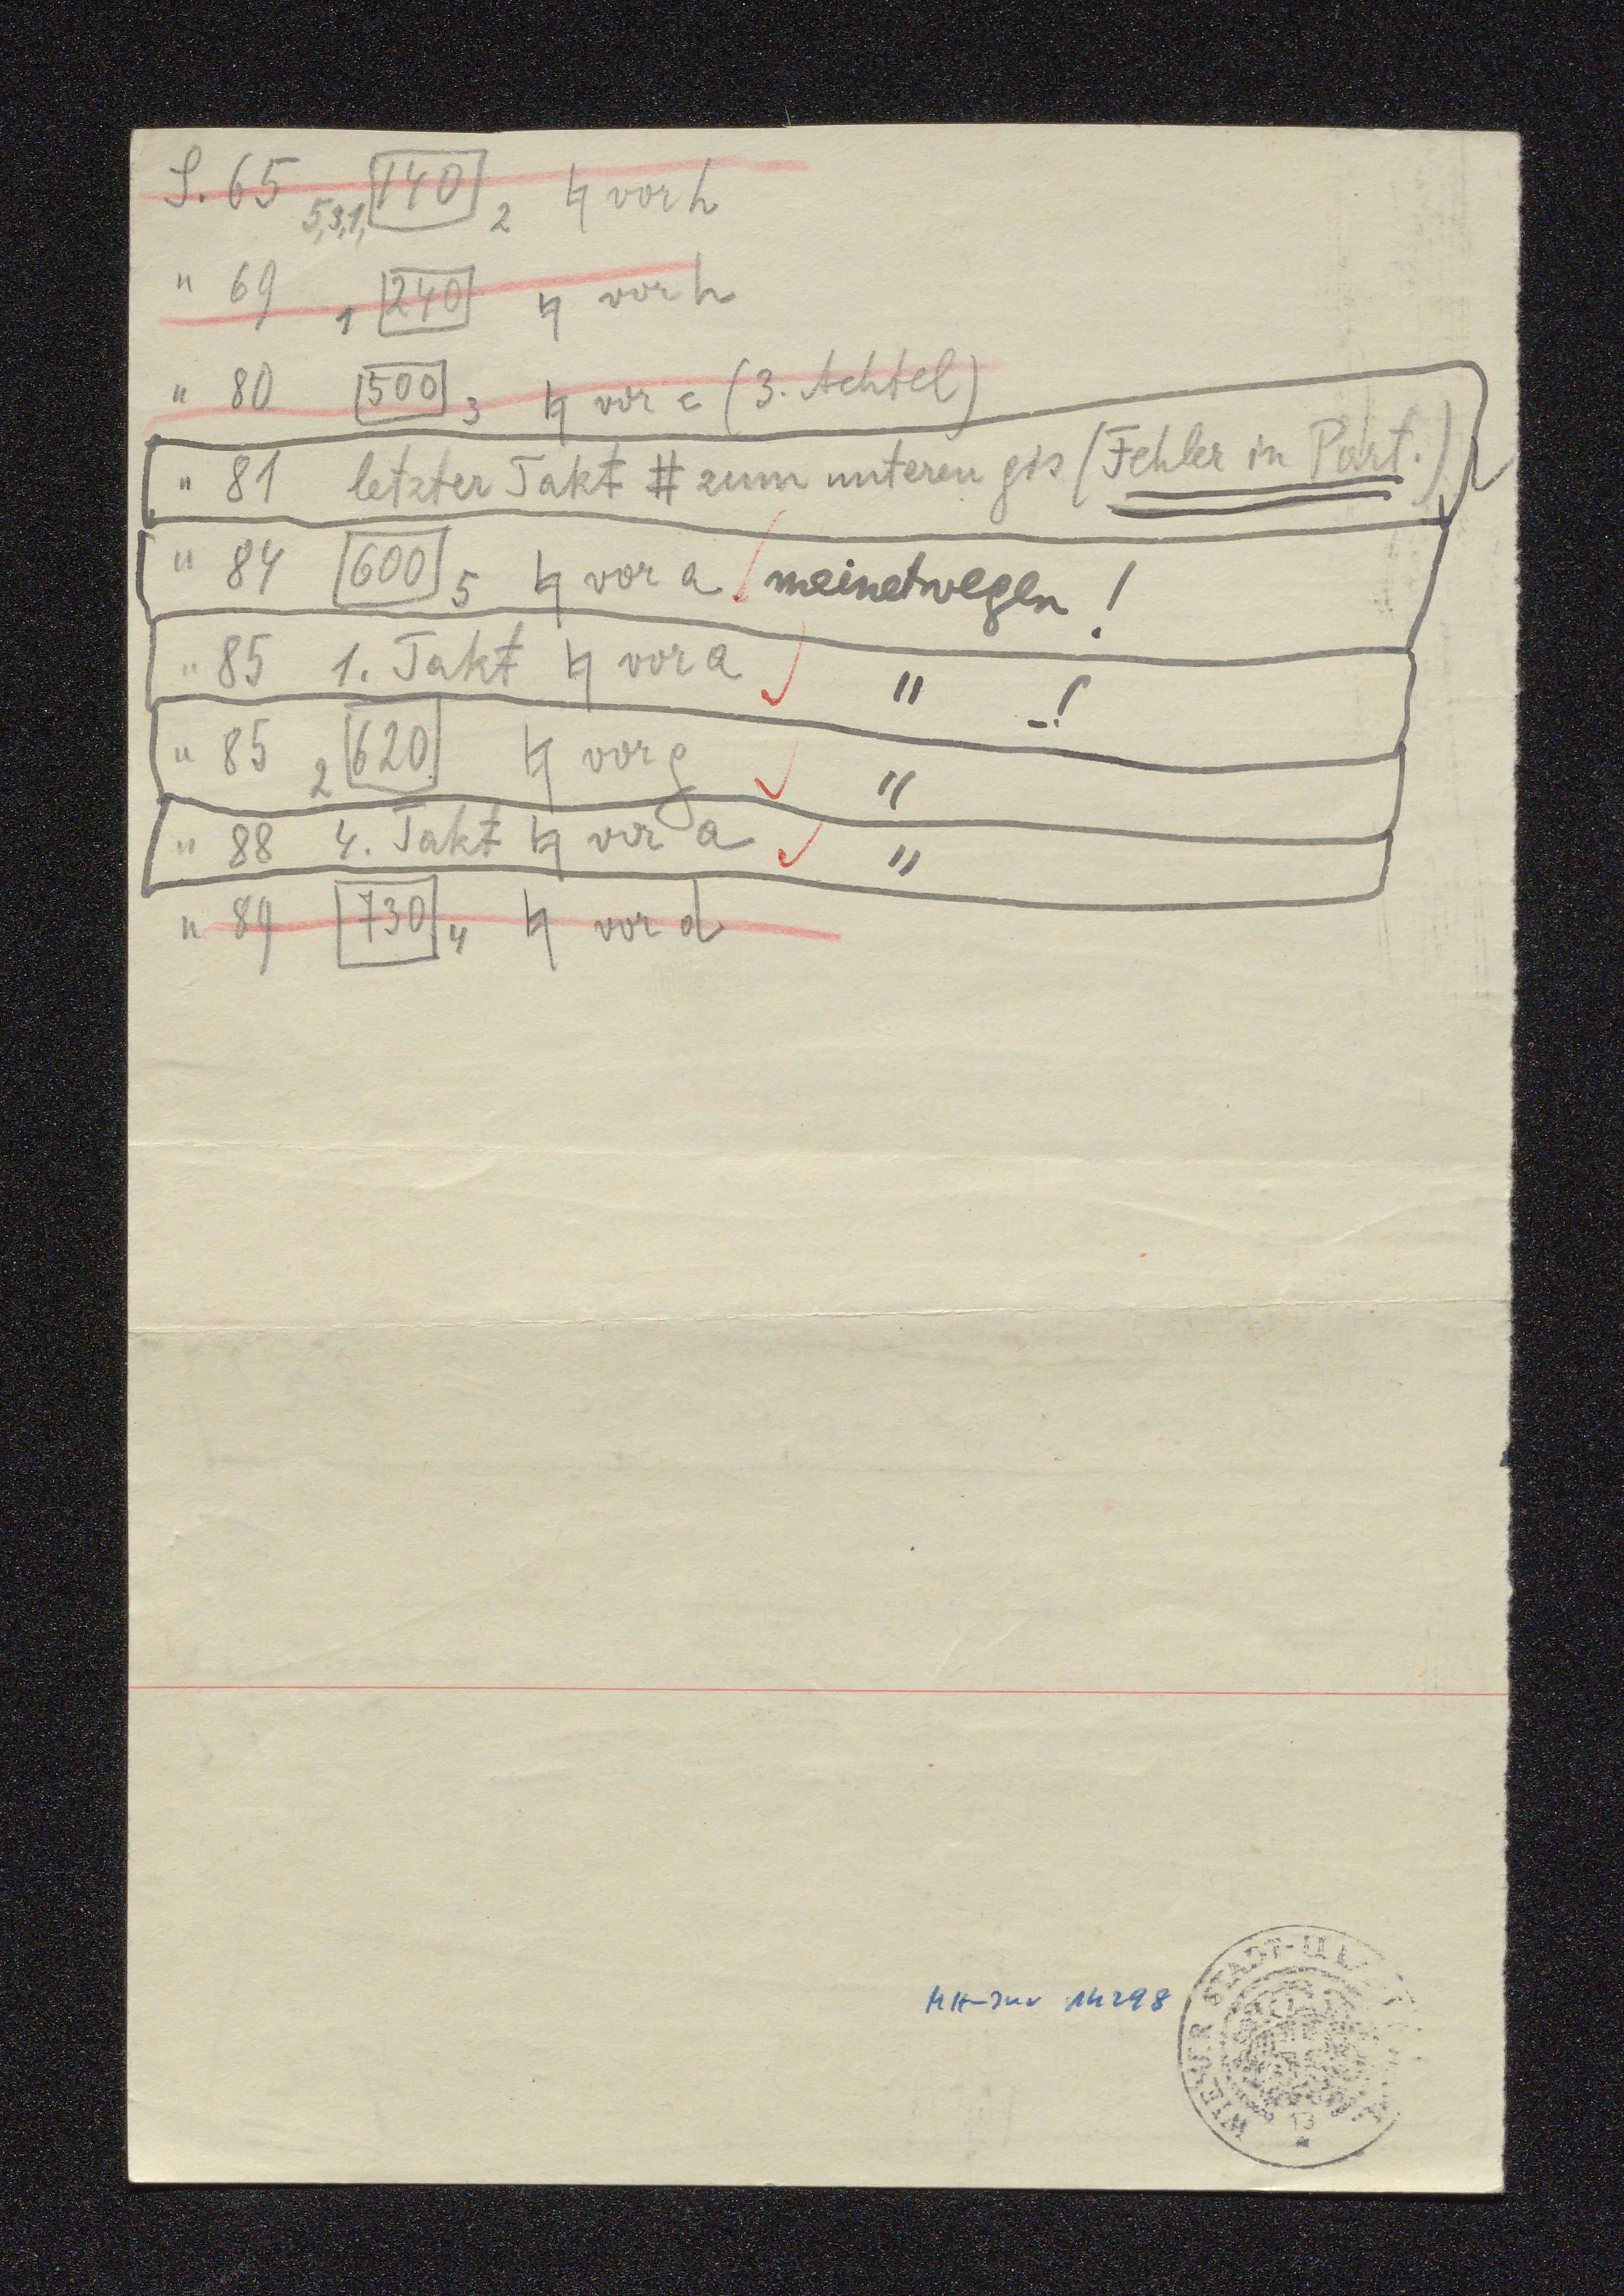 S. 65 5,3,1, 140 2 ♮ vor h
" 69 1 240 ♮ vor h
" 80 500 3 ♮ vor c (3. Achtel)
" 81 letzter Takt # zum unteren gis (Fehler in Part.)
" 84 600 5 ♮ vor a meinetwegen!
" 85 1. Takt ♮ vor a " –!
" 85 2 620 ♮ vor g "
" 88 4. Takt ♮ vor a "
" 89 730 4 ♮ vor d
MH-Inv 14298
WIENER STADT-
13